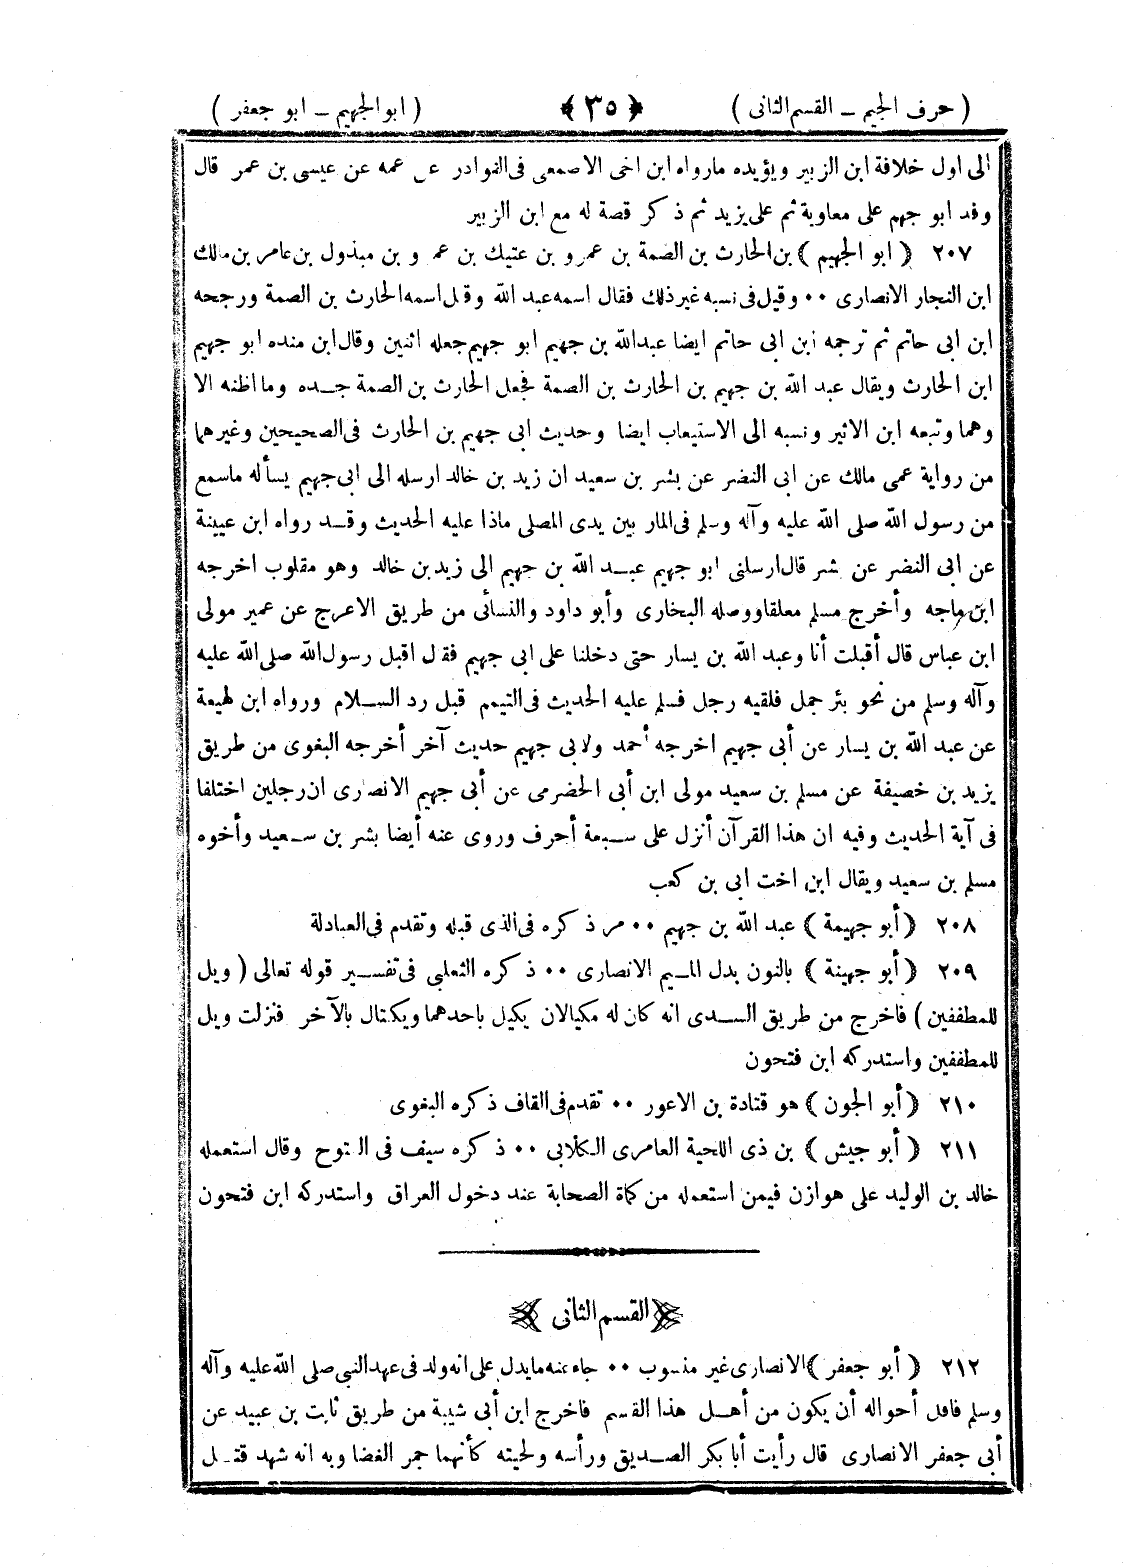 ( حرف الجيم ــ القسم الثانى ) ﴿ ٣٥ ﴾ ( ابو الجهيم ــ ابو جعفر )
الى اول خلافة ابن الزبير ويؤيده مارواه ابن اخى الاصمعى فى النوادر عن عمه عن عيسى بن عمر قال
وفد ابو جهم على معاوية ثم على يزيد ثم ذكر قصة له مع ابن الزبير
٢٠٧ ( ابو الجهيم ) بن الحارث بن الصمة بن عمرو بن عتيك بن عمرو بن مبذول بن عامر بن مالك
ابن النجار الانصارى ٠٠ وقيل فى نسبه غير ذلك فقال اسمه عبد الله وقيل اسمه الحارث بن الصمة ورجحه
ابن ابى حاتم ثم ترجمه ابن ابى حاتم ايضا عبدالله بن جهيم ابو جهيم جعله اثنين وقال ابن منده ابو جهيم
ابن الحارث ويقال عبد الله بن جهيم بن الحارث بن الصمة فجعل الحارث بن الصمة جده وما اظنه الا
وهما وتبعه ابن الاثير ونسبه الى الاستيعاب ايضا وحديث ابى جهيم بن الحارث فى الصحيحين وغيرهما
من رواية عمى مالك عن ابى النضر عن بشر بن سعيد ان زيد بن خالد ارسله الى ابى جهيم يسأله ماسمع
من رسول الله صلى الله عليه وآله وسلم فى المار بين يدى المصلى ماذا عليه الحديث وقد رواه ابن عيينة
عن ابى النضر عن بشر قال ارسلنى ابو جهيم عبد الله بن جهيم الى زيد بن خالد وهو مقلوب اخرجه
ابن ماجه وأخرج مسلم معلقا ووصله البخارى وأبو داود والنسائى من طريق الاعرج عن عمير مولى
ابن عباس قال أقبلت أنا وعبد الله بن يسار حتى دخلنا على ابى جهيم فقال اقبل رسول الله صلى الله عليه
وآله وسلم من نحو بئر جمل فلقيه رجل فسلم عليه الحديث فى التيمم قبل رد السلام ورواه ابن لهيعة
عن عبد الله بن يسار عن أبى جهيم اخرجه أحمد ولابى جهيم حديث آخر أخرجه البغوى من طريق
يزيد بن خصيفة عن مسلم بن سعيد مولى ابن أبى الحضرمى عن أبى جهيم الانصارى ان رجلين اختلفا
فى آية الحديث وفيه ان هذا القرآن أنزل على سبعة أحرف وروى عنه أيضا بشر بن سعيد وأخوه
مسلم بن سعيد ويقال ابن اخت ابى بن كعب
٢٠٨ ( أبو جهيمة ) عبد الله بن جهيم ٠٠ مر ذكره فى الذى قبله وتقدم فى العبادلة
٢٠٩ ( أبو جهينة ) بالنون بدل الميم الانصارى ٠٠ ذكره الثعلبى فى تفسير قوله تعالى ( ويل
للمطففين ) فاخرج من طريق السدى انه كان له مكيالان يكيل باحدهما ويكتال بالآخر فنزلت ويل
للمطففين واستدركه ابن فتحون
٢١٠ ( أبو الجون ) هو قتادة بن الاعور ٠٠ تقدم فى القاف ذكره البغوى
٢١١ ( أبو جيش ) بن ذى اللحية العامرى الكلابى ٠٠ ذكره سيف فى الفتوح وقال استعمله
خالد بن الوليد على هوازن فيمن استعمله من كماة الصحابة عند دخول العراق واستدركه ابن فتحون
القسم الثانى
٢١٢ ( أبو جعفر ) الانصارى غير منسوب ٠٠ جاء عنه مايدل على انه ولد فى عهد النبى صلى الله عليه وآله
وسلم فاقل أحواله أن يكون من أهل هذا القسم فاخرج ابن أبى شيبة من طريق ثابت بن عبيد عن
أبى جعفر الانصارى قال رأيت أبا بكر الصديق ورأسه ولحيته كأنهما جمر الغضا وبه انه شهد قتل